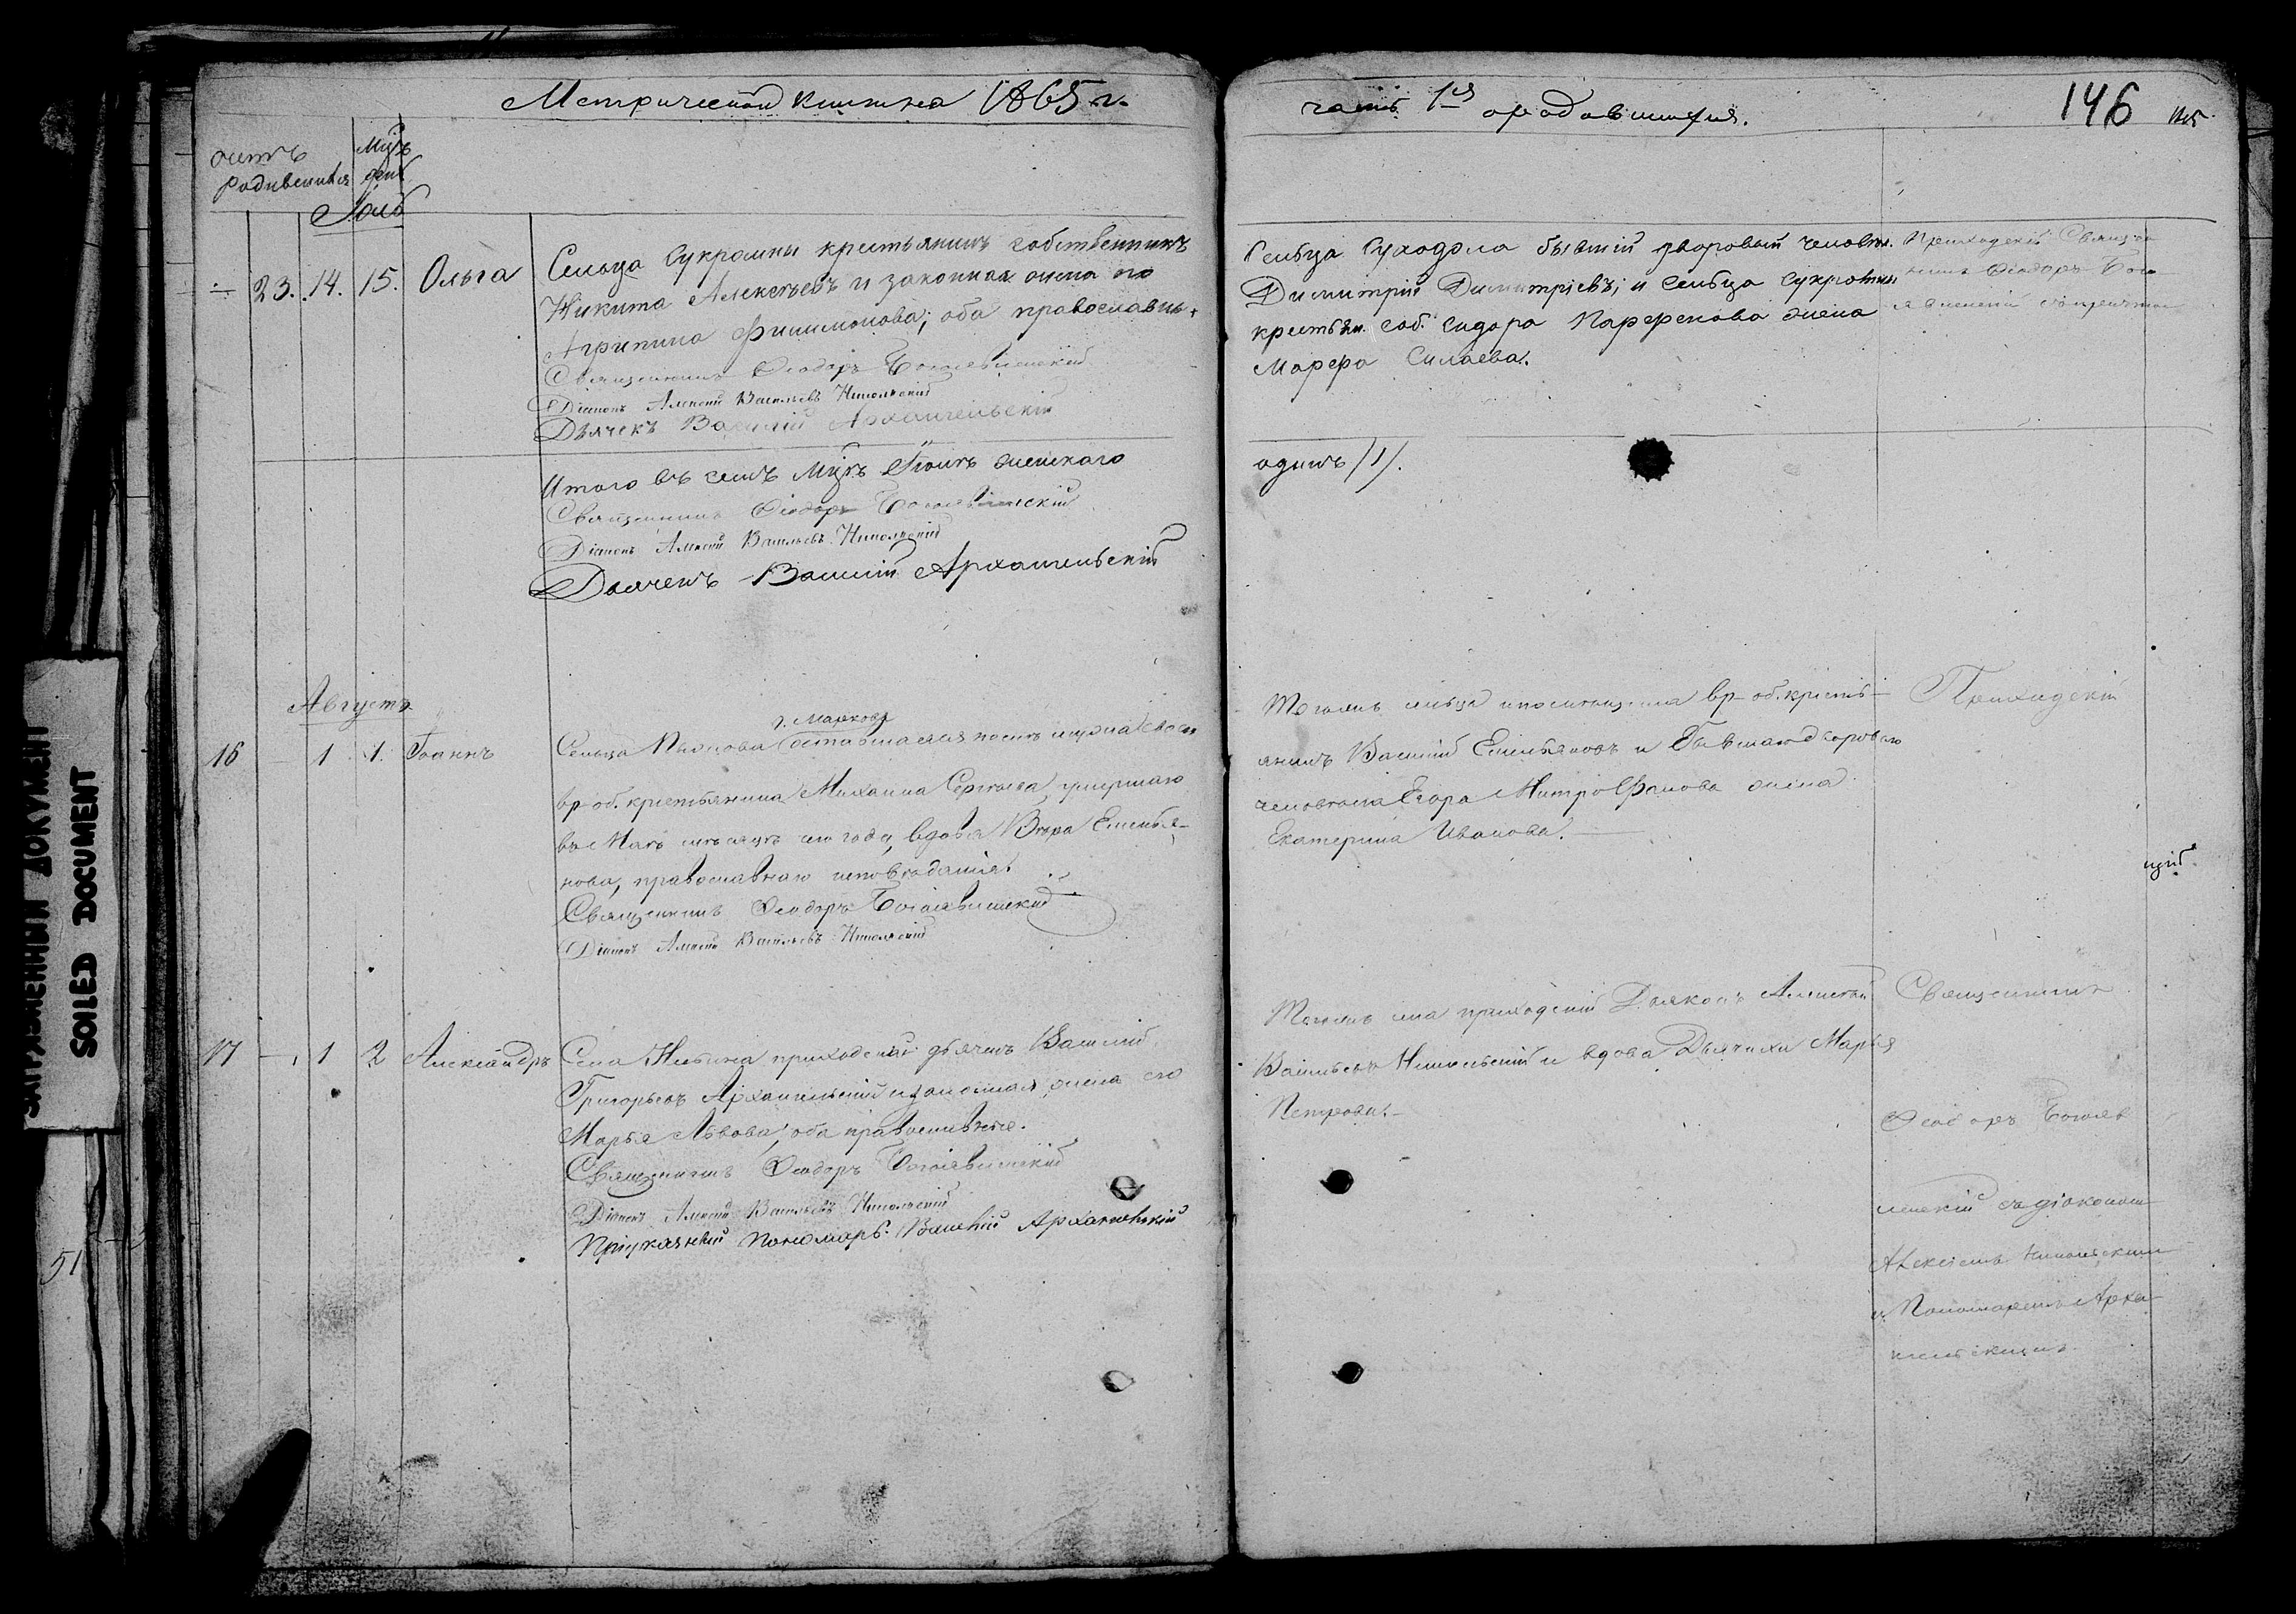 Метрической книги 1865 г.
часть 1я о родившихся.
146
счетъ родившихся
Мцъ день
Іюль
23. 14. 15. Ольга
Сельца Сукромны крестьянинъ собственникъ
Никита Алексѣевъ и законная жена его
Агрипина Филимонова; оба православны.
Священникъ Ѳеодоръ Богоявленскій
Діаконъ Алексѣй Васильевъ Никольскій
Дьячекъ Василій Архангельскій
Сельца Суходола бывшій дворовый человѣк.
Димитрій Димитріевъ; и сельца Сукромны
крестьян. соб. Сидора Парфенова жена
Марфа Силаева.
Приходскій Священ
никъ Ѳеодоръ Бого
явленскій
Итого въ семъ Мцѣ Іюлѣ женскаго
одинъ /1/.
Священникъ Ѳеодоръ Богоявленскій
Діаконъ Алексѣй Васильевъ Никольскій
Дьячекъ Василій Архангельскій
Августъ
16 1 1. Іоаннъ
г. Маркова
Сельца оставшаяся послѣ мужа своего
вр-об. крестьянина Михаила Сергѣева, умершаго
въ Маѣ мѣсяцѣ сего года, вдова Вѣра Емелья-
нова, православнаго исповѣданія.
Священникъ Ѳеодоръ Богоявленскій
Діаконъ Алексѣй Васильевъ Никольскій
Тогожъ сельца и помѣщика вр-об. кресть-
янинъ Василій Емельяновъ и бывшаго двороваго
человѣка Егора Митрофанова жена
Екатерина Иванова.
Приходскій
17 1 2 Александръ
Села приходскій дьячекъ Василій
Григорьевъ Архангельскій и законная жена его
Марья Львова, оба православные.
Священникъ Ѳеодоръ Богоявленскій
Діаконъ Алексѣй Васильевъ Никольскій
Пономарь Василій Архангельскій
Тогожъ села приходскій Дьяконъ Алексѣй
Васильевъ Никольскій и вдова Дьячиха Марья
Петрова.
Священникъ
Ѳеодоръ Богояв
ленскій съ діакономъ
Алексіемъ Никольскимъ
и Пономаремъ Арха-
нгельскимъ.
ЗАГРЯЗНЕННЫЙ ДОКУМЕНТ
SOILED DOCUMENT
51